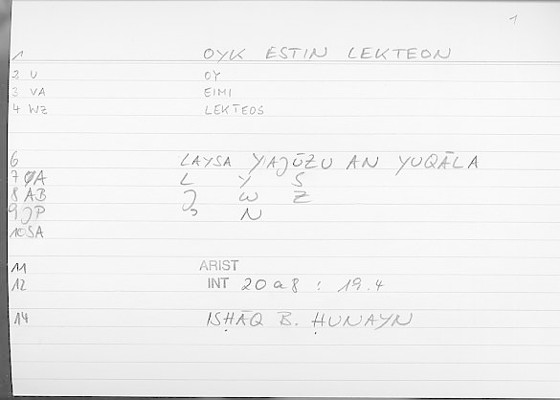 1
1 OYK ESTIN LEKTEON
2 U OY
3 VA EIMI
4 WZ LEKTEOS
6 LAYSA YAJŪZU AN YUQĀLA
7 ØA L Y S
8 AB J W Z
9 JP ʾ N
10 SA
11 ARIST
12 INT 20a8 : 19.4
14 ISḤĀQ B. ḤUNAYN